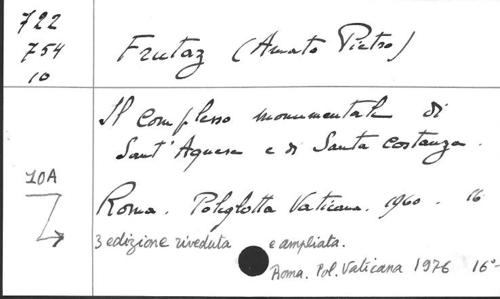 722
754
10
Frutaz (Amato Pietro)
Il complesso monumentale di
Sant'Agnese e di Santa Costanza.
10A
Roma. Poliglotta Vaticana. 1960. 16°
3 edizione riveduta e ampliata.
Roma. Pol. Vaticana 1976 16°-